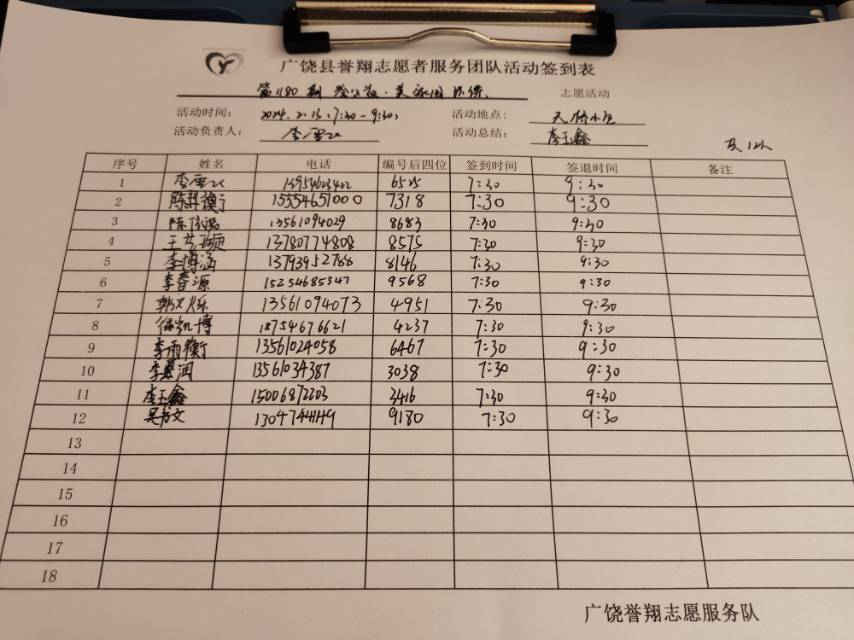 广饶县誉翔志愿者服务团队活动签到表
第1180期 志愿活动
活动时间: 2024.2.13.7:30-9:30 活动地点:
活动负责人: 活动总结: 李玉鑫
共12人
序号 姓名 电话 编号后四位 签到时间 签退时间 备注
1 13954623422 6525 7:30 9:30
2 15554651000 7318 7:30 9:30
3 13561094029 8683 7:30 9:30
4 13780774808 8575 7:30 9:30
5 李博涵 13793952788 8146 7:30 9:30
6 李春源 15254685347 9568 7:30 9:30
7 13561094073 4951 7:30 9:30
8 徐凯博 18754676621 4237 7:30 9:30
9 李雨衡 13561024058 6467 7:30 9:30
10 13561034387 3038 7:30 9:30
11 李玉鑫 15006872203 3416 7:30 9:30
12 9180 7:30 9:30
13
14
15
16
17
18
广饶誉翔志愿服务队